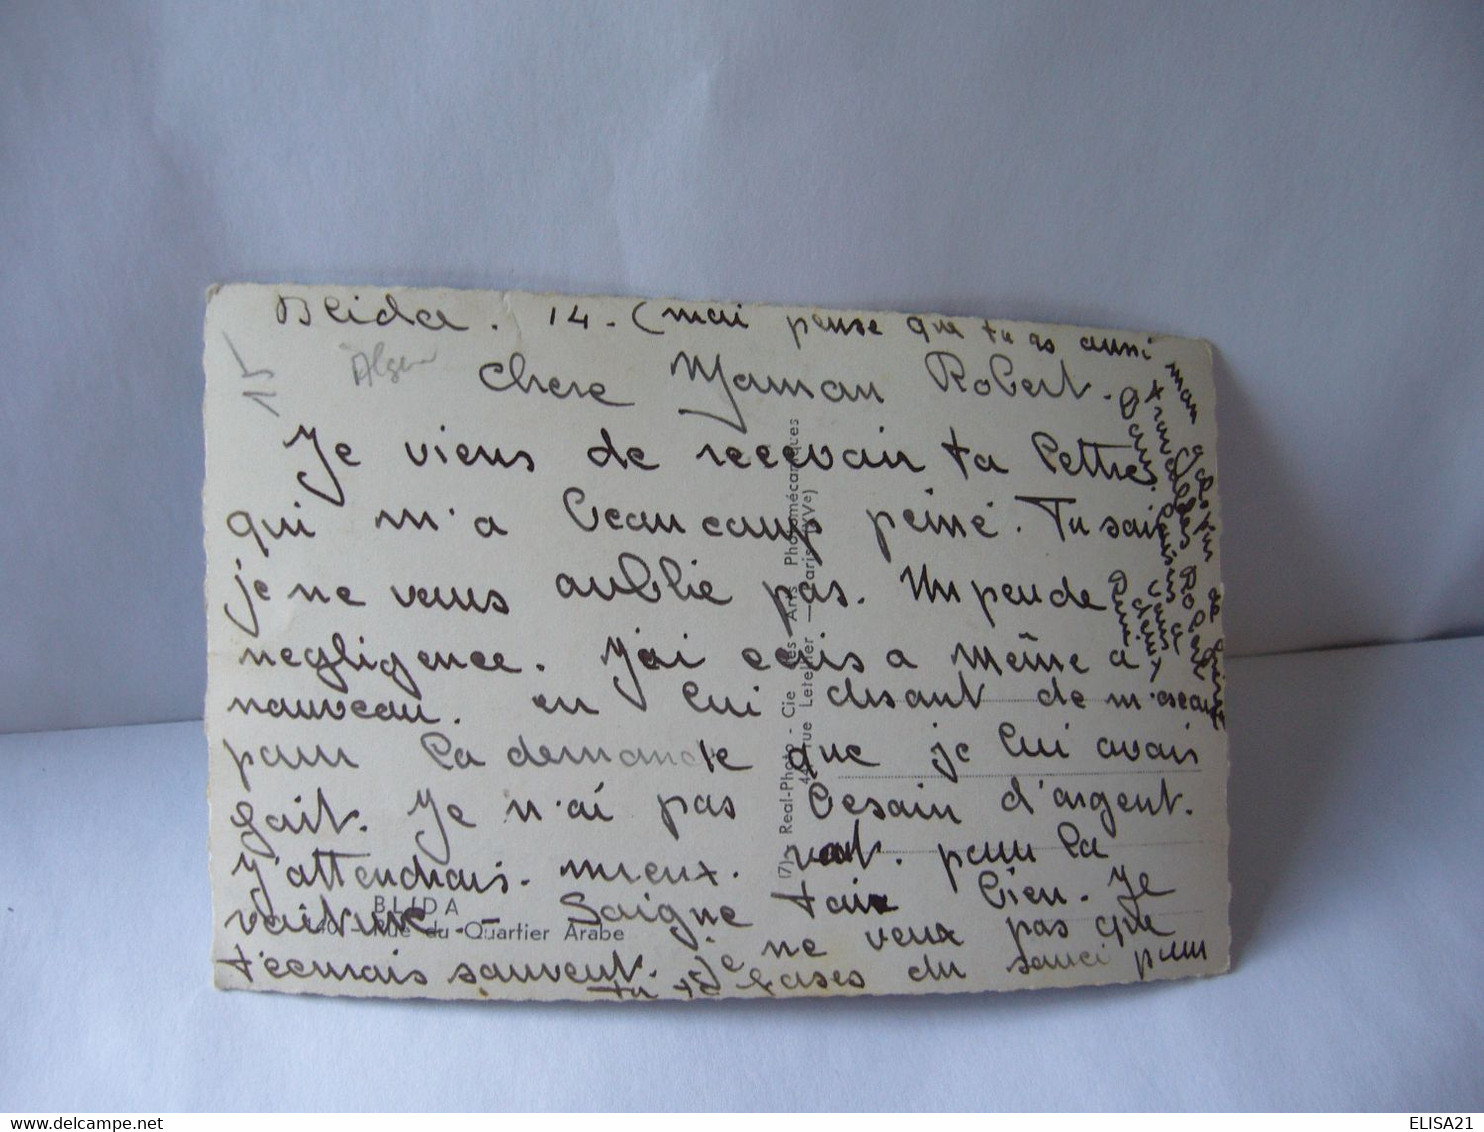 Blida. 14. (mai pense que tu as aussi
Alger
15
Chere Maman Robert.
Je viens de recevoir ta lettre
qui m'a beaucoup peiné. Tu sais
je ne vous oublie pas. Un peu de
negligence. J'ai ecris a même a
nouveau. en lui disant de m'
pour la demande que je lui avais
fait. Je n'ai pas besoin d'argent.
J'attendrais. mieux. pour la
voiture. - Soigne toi bien. Je
t'ecrirais souvent. Je ne veux pas que
tu te fases du souci pour
mon
travail des Robert
Dans
baisers a
vous deux
(7) - Real-Photo - Cie des Arts Photomécaniques
44, rue Letellier - Paris (XVe)
BLIDA
40 - Rue du Quartier Arabe
ELISA21